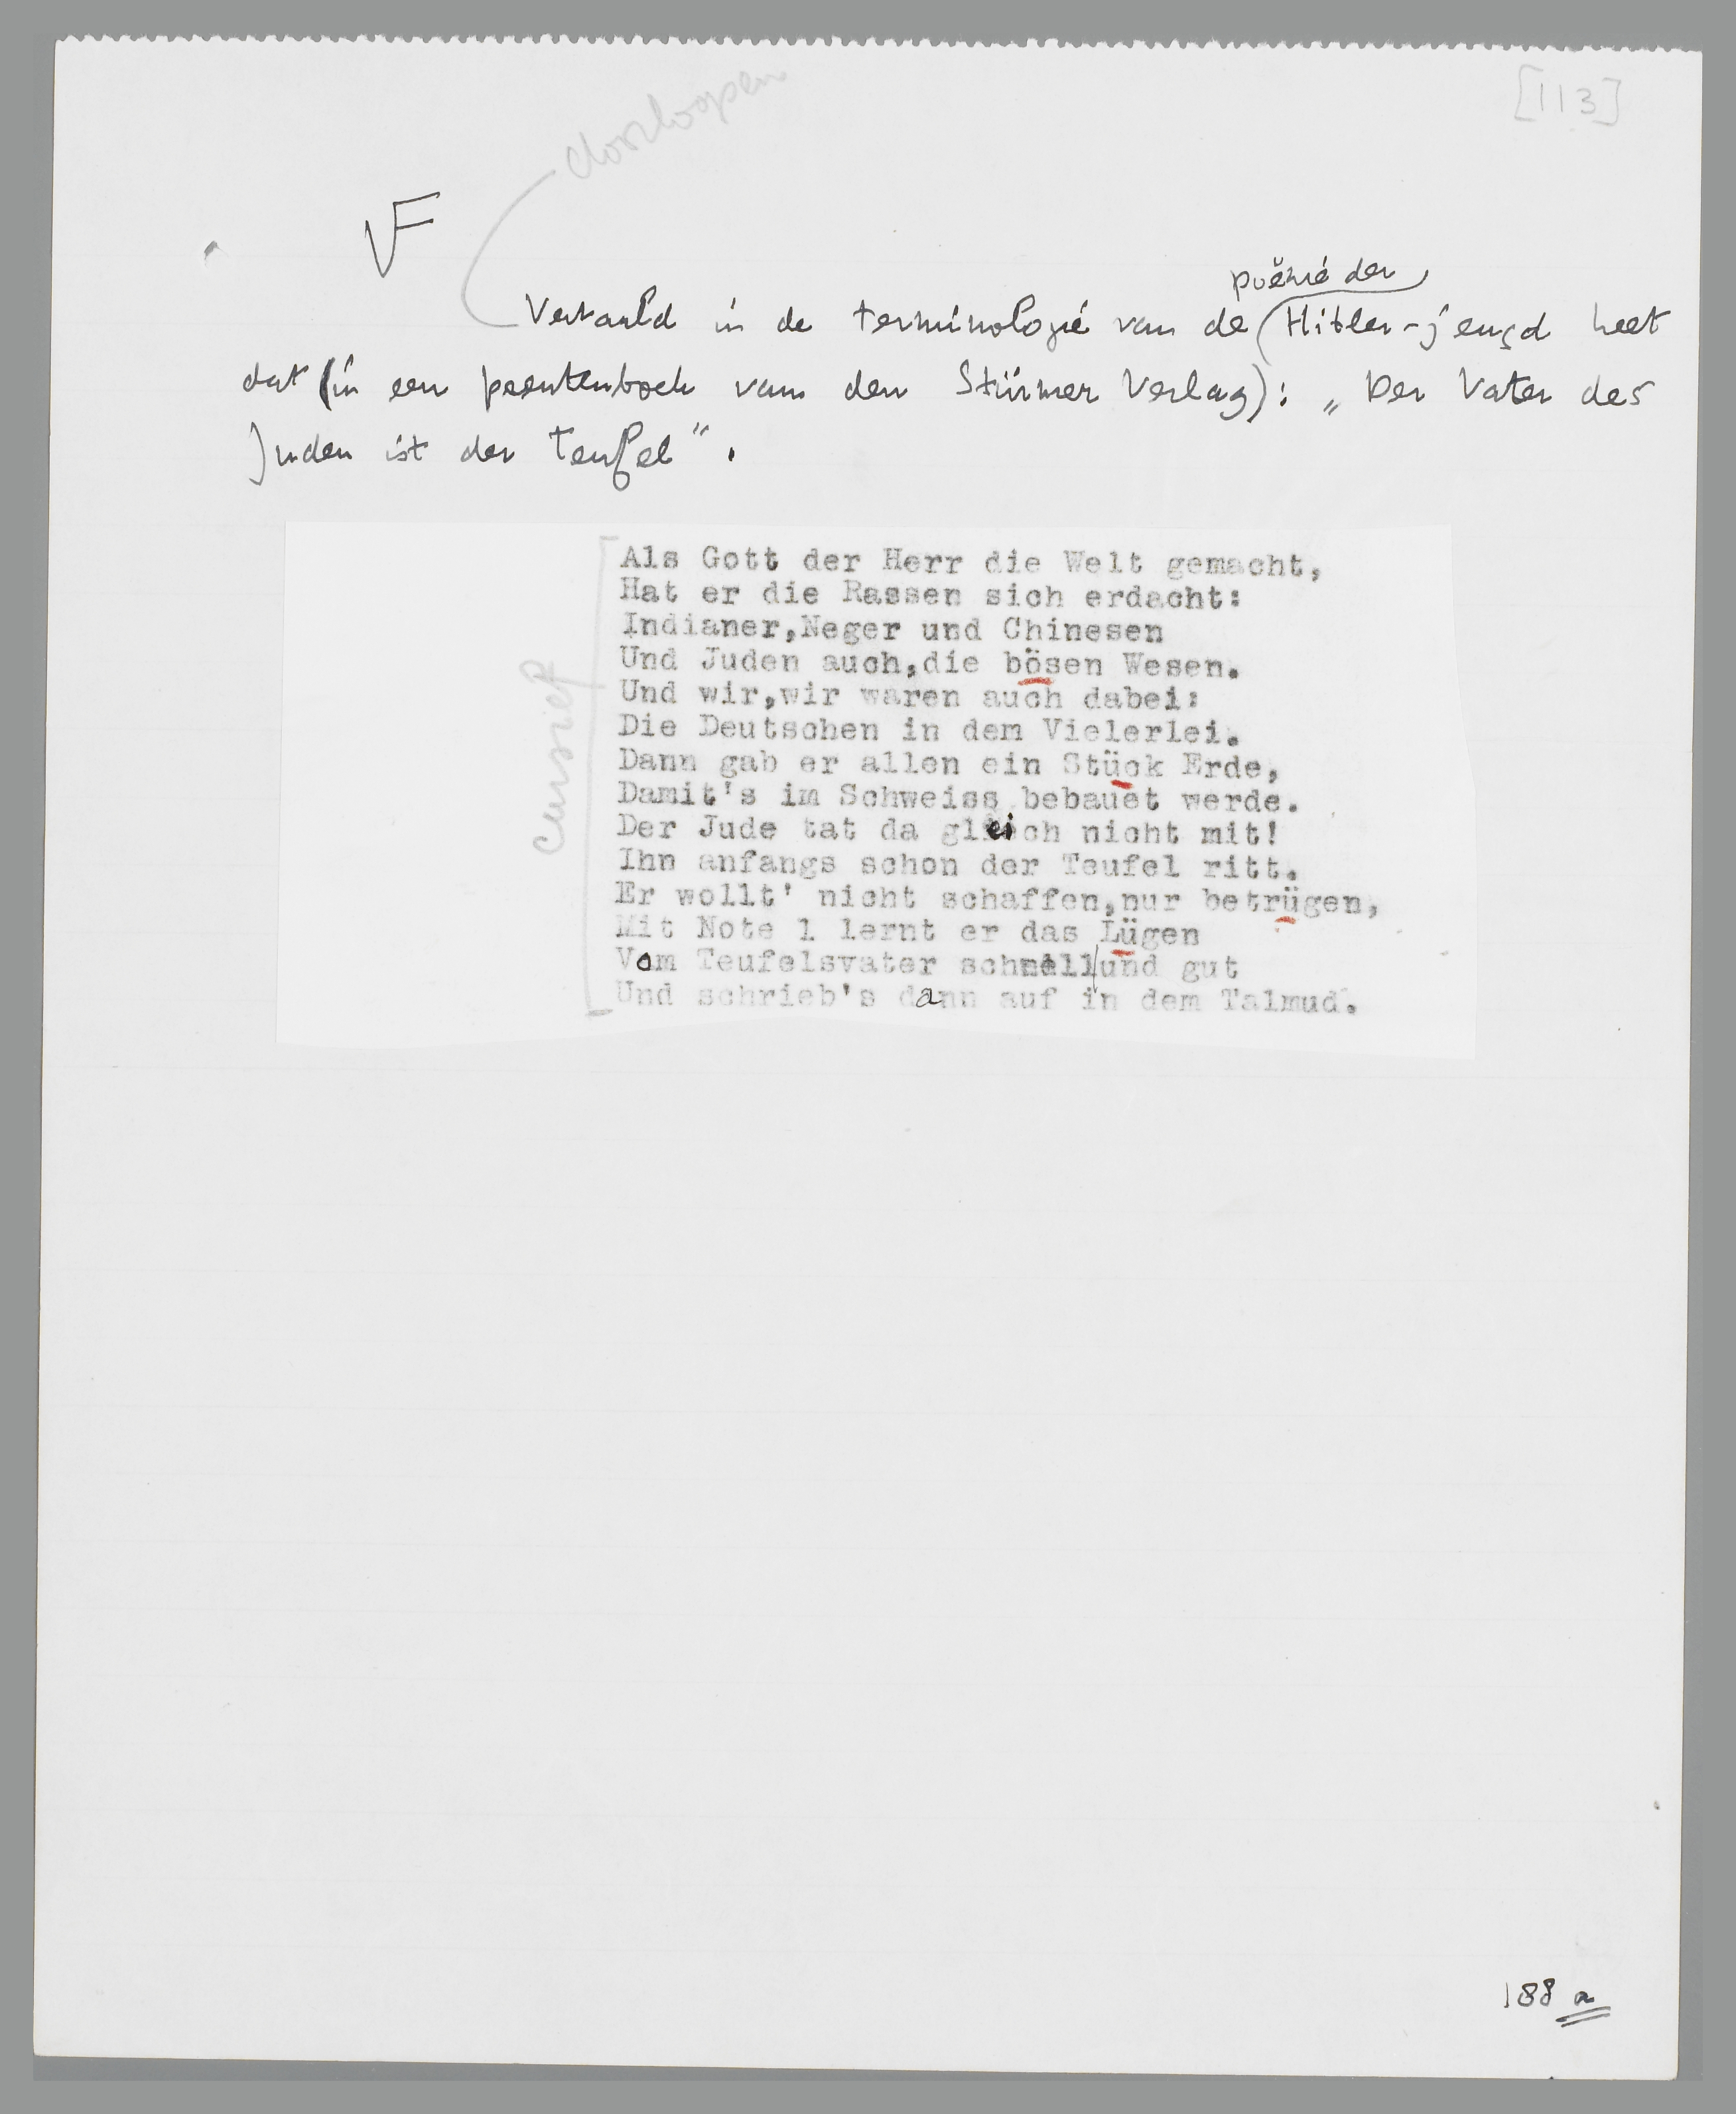 doorloopen
[113]
VF
poëzie der
Vertaald in de terminologie van de Hitler-jeugd heet
dat (in een prentenboek van den Stürmer Verlag): „Der Vater des
Juden ist der Teufel".
cursief
Als Gott der Herr die Welt gemacht,
Hat er die Rassen sich erdacht:
Indianer,Neger und Chinesen
Und Juden auch,die bösen Wesen.
Und wir,wir waren auch dabei:
Die Deutschen in dem Vielerlei.
Dann gab er allen ein Stück Erde,
Damit's im Schweiss bebauet werde.
Der Jude tat da gleich nicht mit!
Ihn anfangs schon der Teufel ritt.
Er wollt' nicht schaffen,nur betrügen,
Mit Note 1 lernt er das Lügen
Vom Teufelsvater schnell und gut
Und schrieb's dann auf in dem Talmud.
188 a